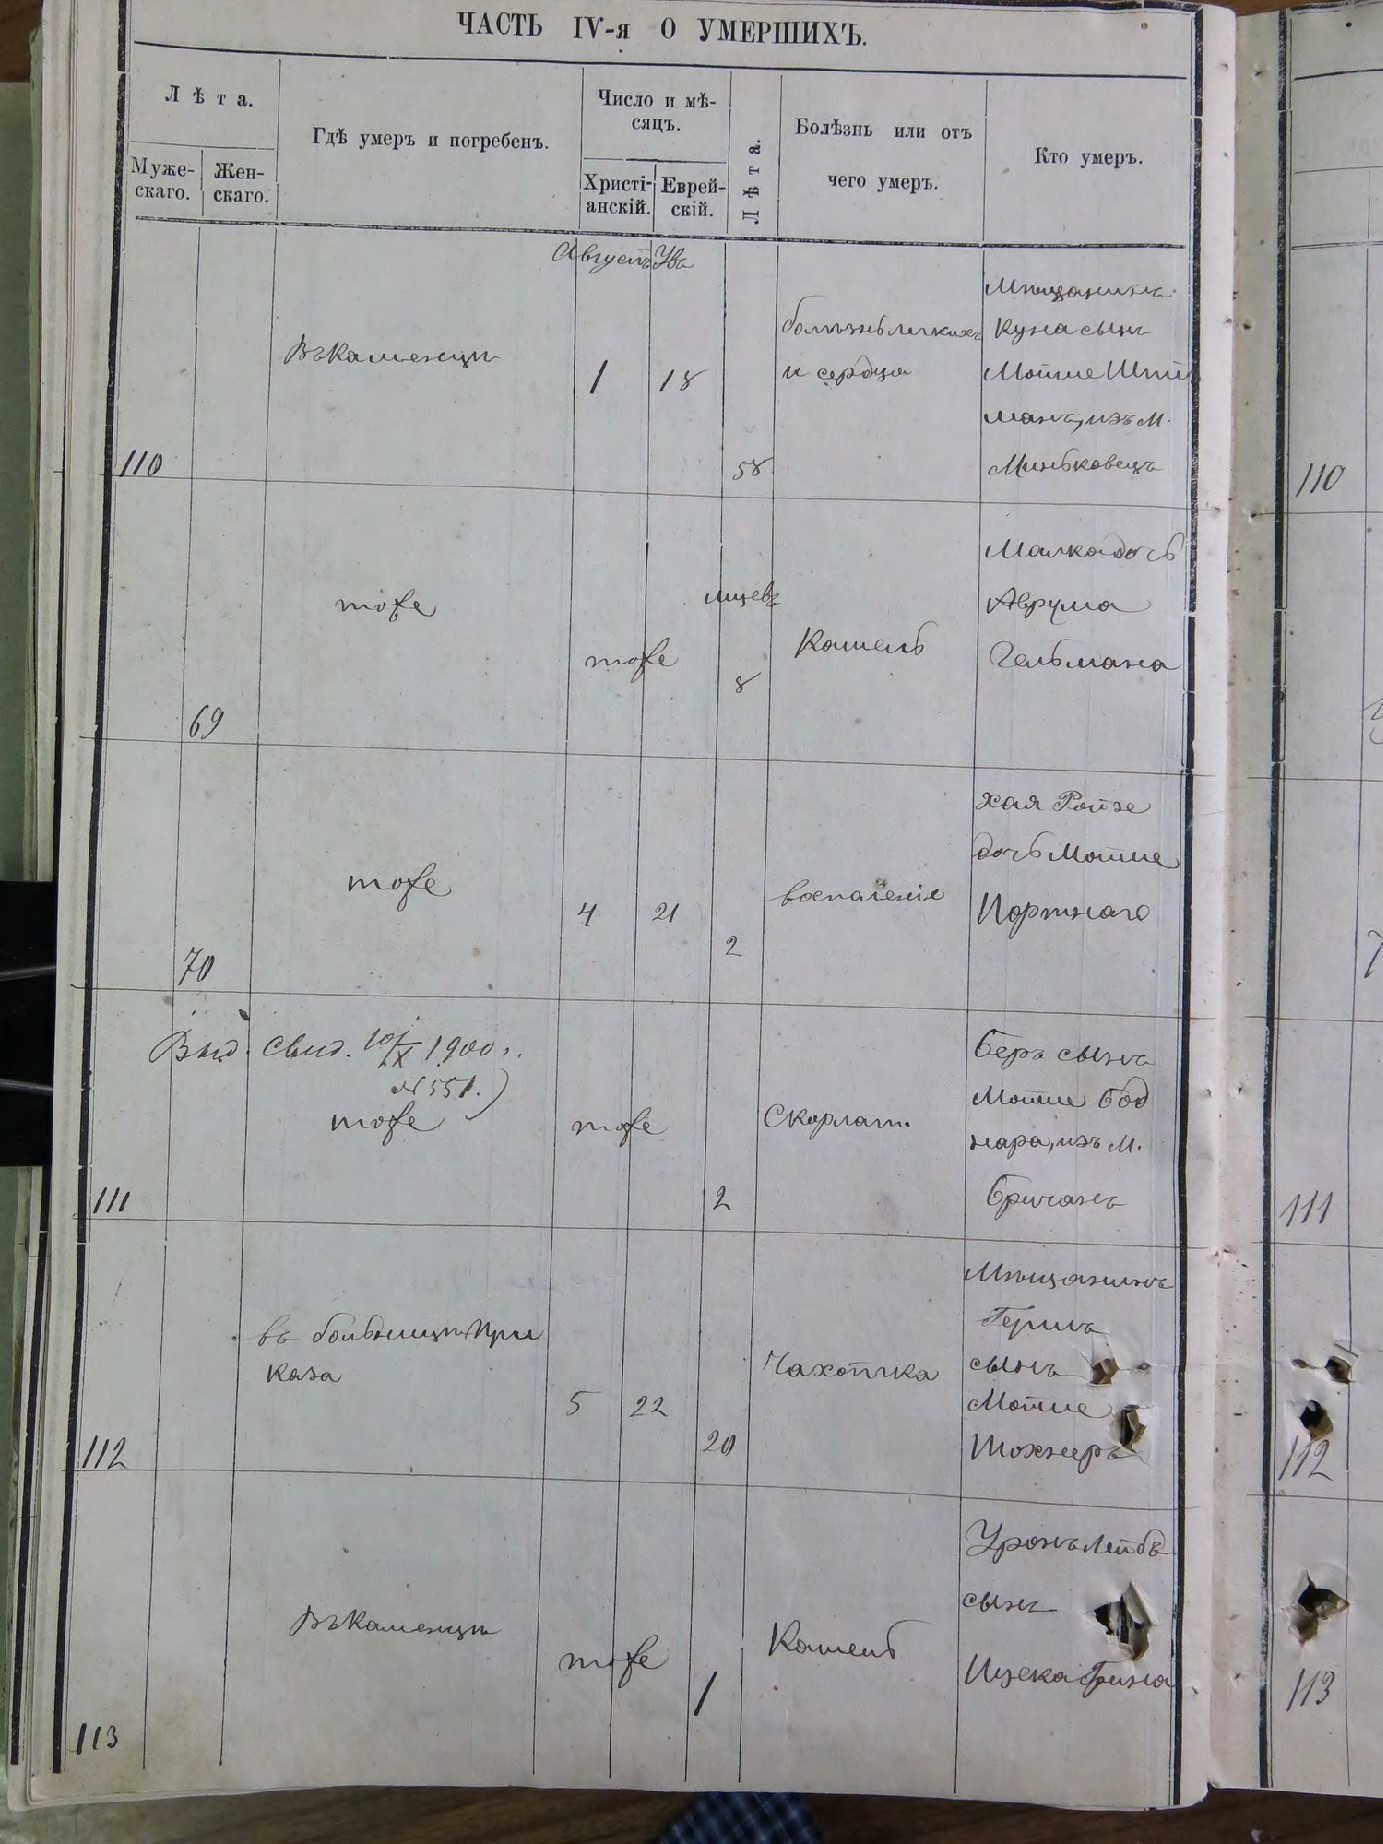 ЧАСТЬ IV-я О УМЕРШИХЪ.
Лѣта.
Муже-
скаго.
Жен-
скаго.
Гдѣ умеръ и погребенъ.
Число и мѣ-
сяцъ.
Христі-
анскій.
Еврей-
скій.
Лѣта.
Болѣзнь или отъ
чего умеръ.
Кто умеръ.
АвгустъУвъ
110
Въ Каменцѣ
1
18
58
болѣзнь легкихъ
и сердца
Мѣщанинъ
Куна сынъ
Мотше
манъ, изъ м.
Миньковецъ
110
69
тоже
тоже
8
Кашель
Малка дочь
Аврума
Гельмана
70
тоже
4
21
2
воспаленіе
Хая Ройзе
дочь Мотше
Портнаго
Выд. свид. 10/IX 1900 г.
№ 551.)
111
тоже
тоже
2
Скарлат.
Беръ сынъ
Мотше Бод
нара, изъ м.
Бричанъ
111
112
въ больницѣ При
каза
5
22
20
Чахотка
Мѣщанинъ
Гершъ
сынъ
Мотше
112
113
Въ Каменцѣ
тоже
1
Кашель
Уронъ Лейбъ
сынъ
Ицека Грина
113